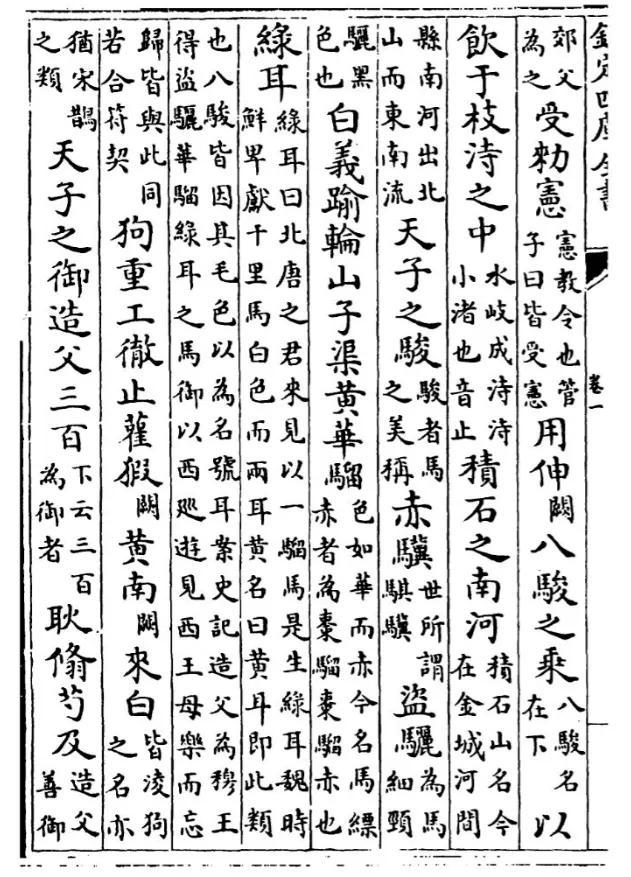 欽定四庫全書 卷一
郊父為之受勑憲憲教令也管子曰皆受憲用伸闕八駿之乘八駿名在下以
飲于枝洔之中水岐成洔洔小渚也音止積石之南河積石山名今在金城河間
縣南河出北山而東南流天子之駿駿者馬之美稱赤驥世所謂騏驥盜驪為馬細頸
驪黑色也白義踰輪山子渠黃華騮色如華而赤今名馬縹赤者為棗騮棗騮赤也
綠耳綠耳曰北唐之君來見以一騮馬是生綠耳魏時鮮卑獻千里馬白色而兩耳黃名曰黃耳即此類
也八駿皆因其毛色以為名號耳案史記造父為穆王得盜驪華騮綠耳之馬御以西廵遊見西王母樂而忘
歸皆與此同若合符契狗重工徹止雚猳闕黃南闕來白皆淩狗之名亦
猶宋鵲之類天子之御造父三百下云三百為御者耿翛芍及造父善御